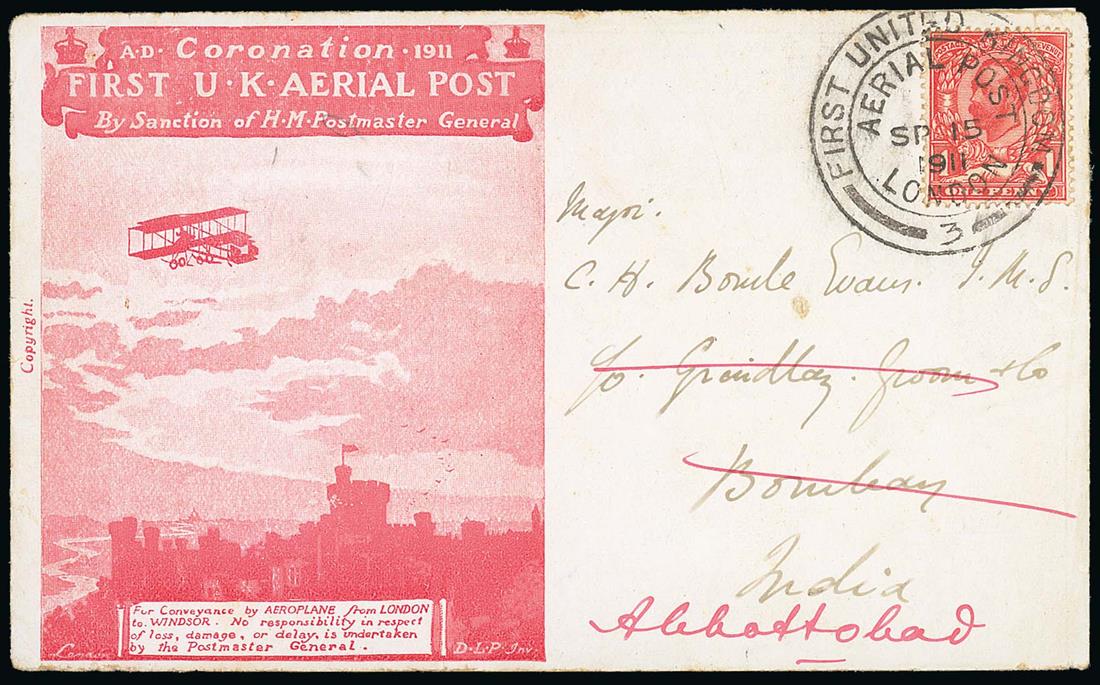 A·D· Coronation · 1911
FIRST U·K·AERIAL POST
By Sanction of H·M·Postmaster General
Copyright.
For Conveyance by AEROPLANE from LONDON
to WINDSOR. No responsibility in respect
of loss, damage, or delay, is undertaken
by the Postmaster General.
D·L·P·Inv.
FIRST UNITED KINGDOM
AERIAL POST
SP 15
1911
LONDON
3
POSTAGE REVENUE
Major.
C. H. Evans. I.M.S.
c/o. Grindlay. Groom & Co
Bombay
India
Abbottabad